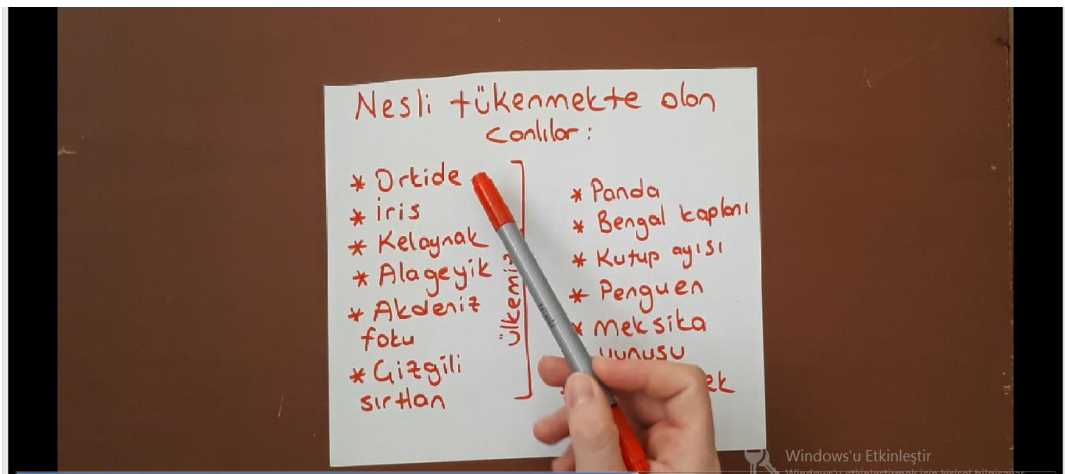 Nesli tükenmekte olan
canlılar:
* Orkide
* İris
* Kelaynak
* Alageyik
* Akdeniz
foku
* Çizgili
sırtlan
* Panda
* Bengal kaplanı
* Kutup ayısı
* Penguen
* Meksika
yunusu
Windows'u Etkinleştir